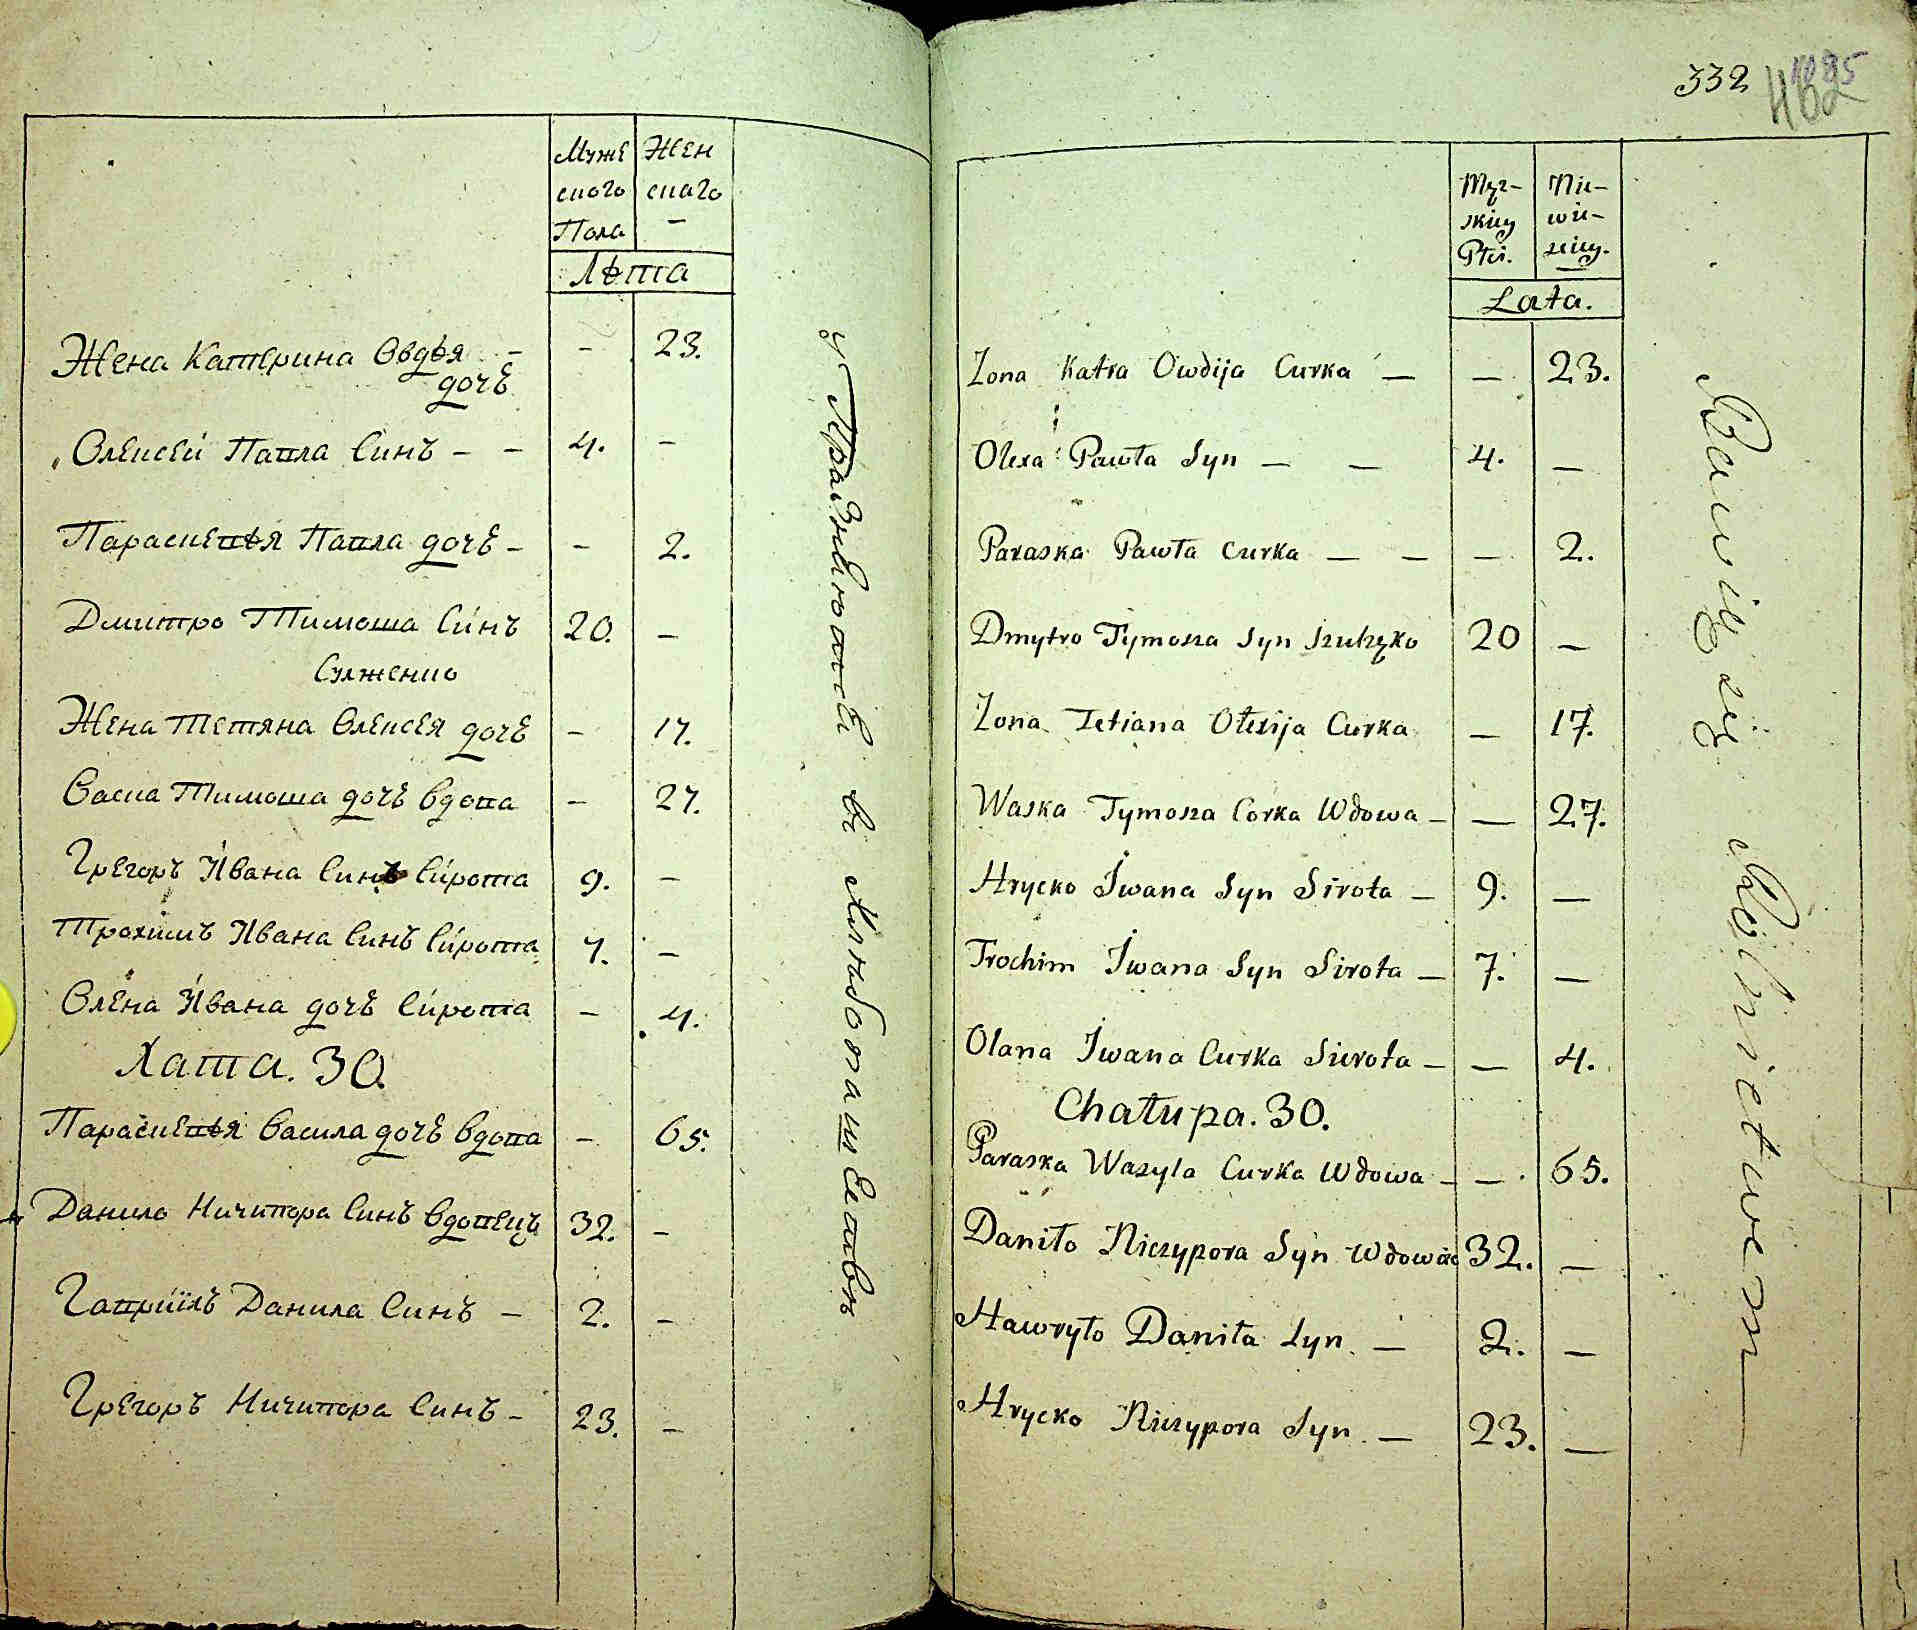 Муже
ского
Пола
Жен
ского
–
Лѣта
Жена Катерина Овдѣя – – 23.
дочь
Олексей Павла Синъ – – 4. –
Параскевѣя Павла дочь – – 2.
Дмитро Тимоша Синъ 20. –
Служенко
Жена Тетяна Олексея дочь – 17.
Васка Тимоша дочь вдова – 27.
Грегоръ Ивана Синъ Сирота 9. –
Трохимъ Ивана Синъ Сирота 7. –
Олена Ивана дочь Сирота – 4.
Хата. 30.
Параскевѣя Василя дочь вдова – 65.
Данило Ничипора Синъ вдовецъ 32. –
Гавриилъ Данила Синъ – 2. –
Грегоръ Ничипора Синъ – 23. –
у Пражнюются в Хлибопашеств
332
Męz-
skiey
Płci.
Nie-
wie-
sciey.
Lata.
Zona Katra Owdija Curka – – 23.
Olexa Pawła Syn – – 4. –
Paraska Pawła Curka – – – 2.
Dmytro Tymosza Syn 20 –
Zona Tetiana Olexija Curka – 17.
Waska Tymosza Corka Wdowa – – 27.
Hrycko Iwana Syn Sirota – 9. –
Trochim Iwana Syn Sirota – 7. –
Olana Iwana Curka Sierota – – 4.
Chałupa. 30.
Paraska Wasyla Curka Wdowa – – 65.
Daniło Niczypora Syn Wdowiec 32. –
Hawryło Daniła Syn – 2. –
Hrycko Niczypora Syn – 23. –
Bawią się Rolnictwem